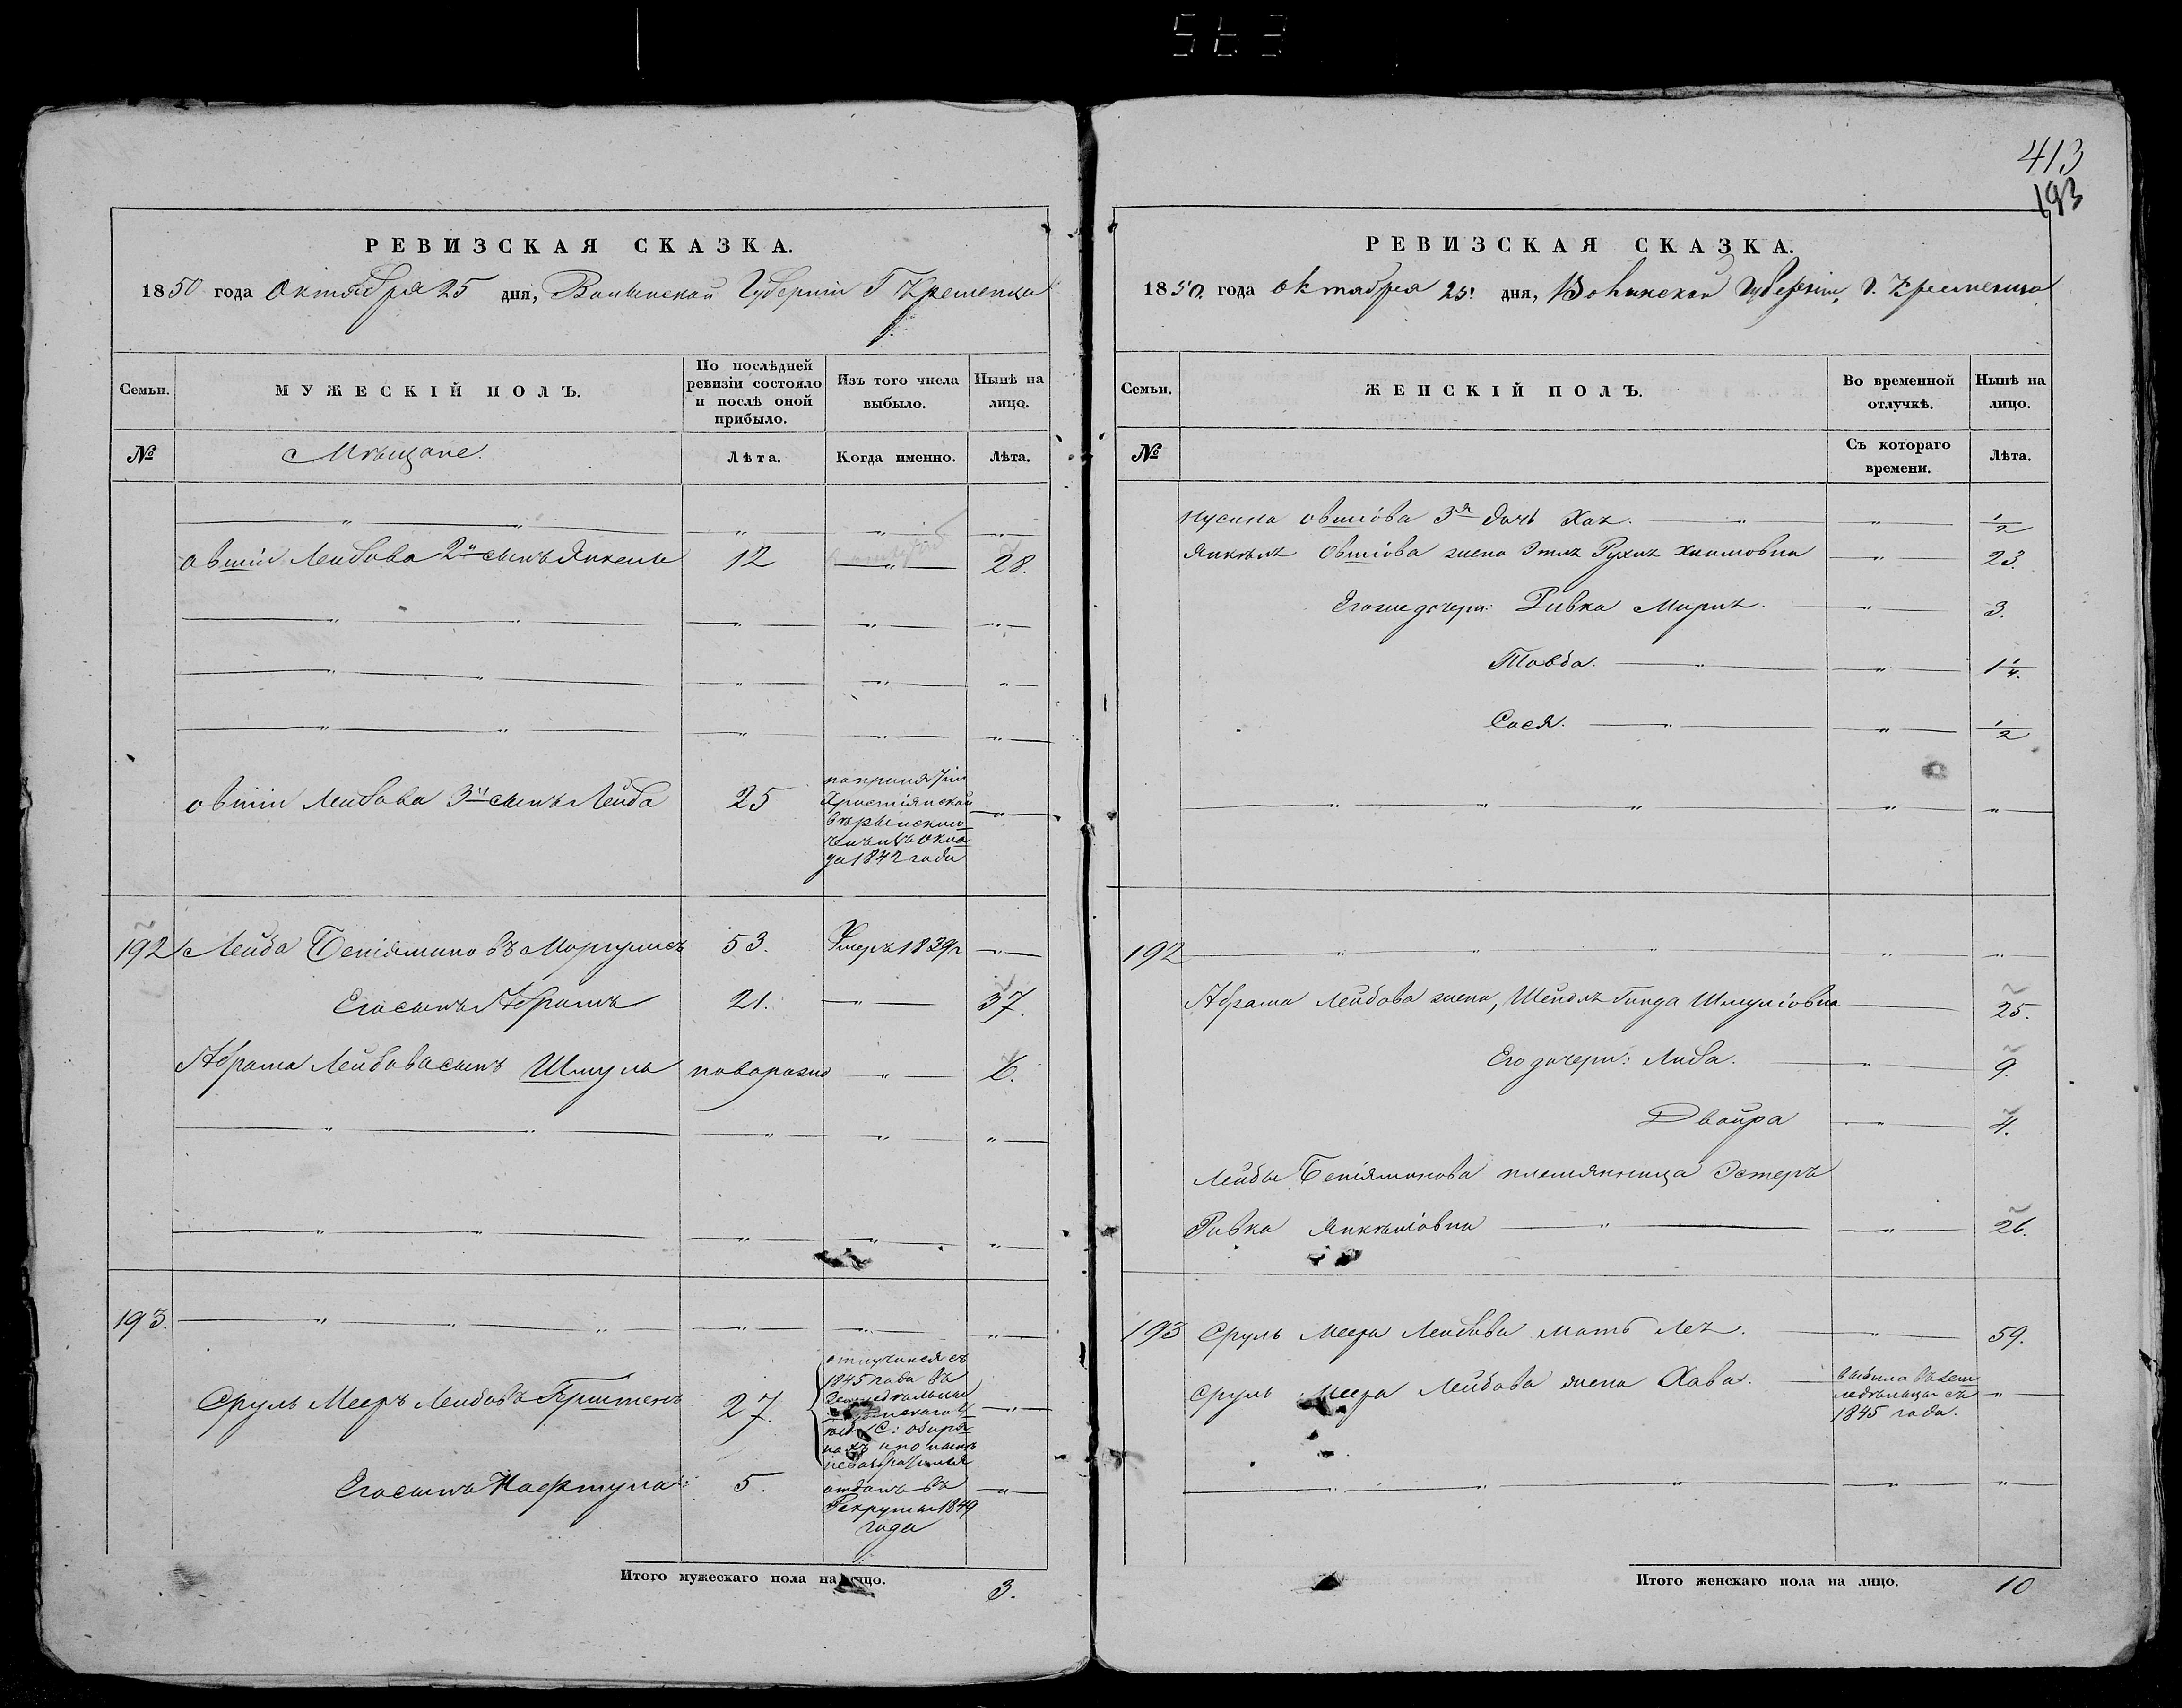 413
193
РЕВИЗСКАЯ СКАЗКА.
1850 года Октября 25 дня, Волынской Губерніи Г Кременца
Семьи.
МУЖЕСКІЙ ПОЛЪ.
По послѣдней ревизіи состояло и послѣ оной прибыло.
Изъ того числа выбыло.
Нынѣ на лицо.
№
Мѣщане.
Лѣта.
Когда именно.
Лѣта.
— " — " — " — " — " —
Овшія Лейбова 2й сынъ Янкель 12 — " — 28.
— " — " — " — " — " —
— " — " — " — " — " —
— " — " — " — " — " —
Овшіи Лейбова 3й сынъ Лейба 25
по принятіи
Христіянской
вѣры исклю
ченъ изъ окла
да 1842 года
— " —
192 Лейба Беніяминовъ Моргулисъ 53. Умеръ 1839 г — " —
Его сынъ Абрамъ 21. — " — 37.
Абрама Лейбова сынъ Шмуль новорожд — " — 6.
— " — " — " — " — " —
— " — " — " — " — " —
193. — " — " — " — " — " — " —
Сруль Мееръ Лейбовъ 27.
отлучился съ
1845 года въ
Земледѣльцы
и по нынѣ
— " —
Его сынъ Нафтула 5.
отданъ въ
Рекруты 1849
года
— " —
Итого мужескаго пола на лицо. 3.
РЕВИЗСКАЯ СКАЗКА.
1850. года Октября 25. дня, Волынской Губерніи, Г. Кременца
Семьи.
ЖЕНСКІЙ ПОЛЪ.
Во временной отлучкѣ.
Нынѣ на лицо.
№
Съ котораго времени.
Лѣта.
Нусина Овшіова 3я дочь Хая. — " — " — 1/2
Янкеля Овшіова жена Этля Рухля Хаимовна — " — 23.
Его же дочери: Ривка Миряя. — " — 3.
Товба. — " — " — 1 1/4.
Сося. — " — " — 1/2
— " — " — " — " — " —
192 — " — " — " — " —
Абрама Лейбова жена, Шейндля Гинда Шмуліовна — 25.
Его дочери: Либа. — " — 9.
Двойра — " — 4.
Лейбы Беніяминова племянница Эстеръ
Ривка Янкеліовна — " — " — 26.
193 Сруль Меера Лейбова мать Лея. — " — 59.
Сруль Меера Лейбова жена Хава. —
выбыла въ Зем
ледѣльцы съ
1845 года.
— " —
— " — " — " — " — " —
Итого женскаго пола на лицо. 10